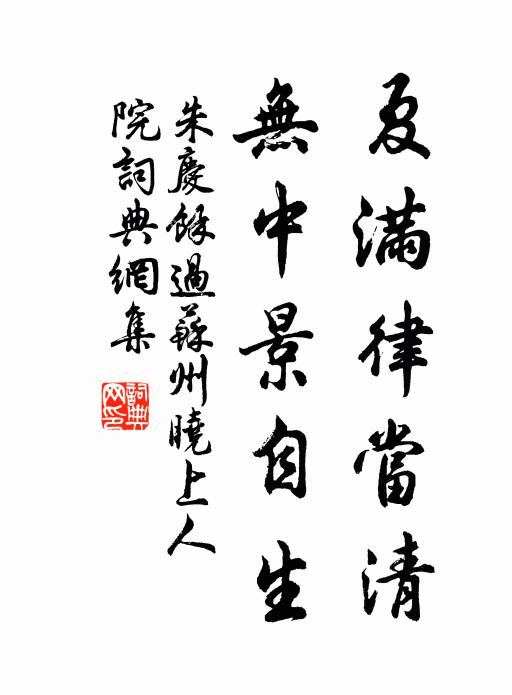 夏滿律當清
無中景自生
朱慶餘過蘇州曉上人
院詞典網集
詞典网印